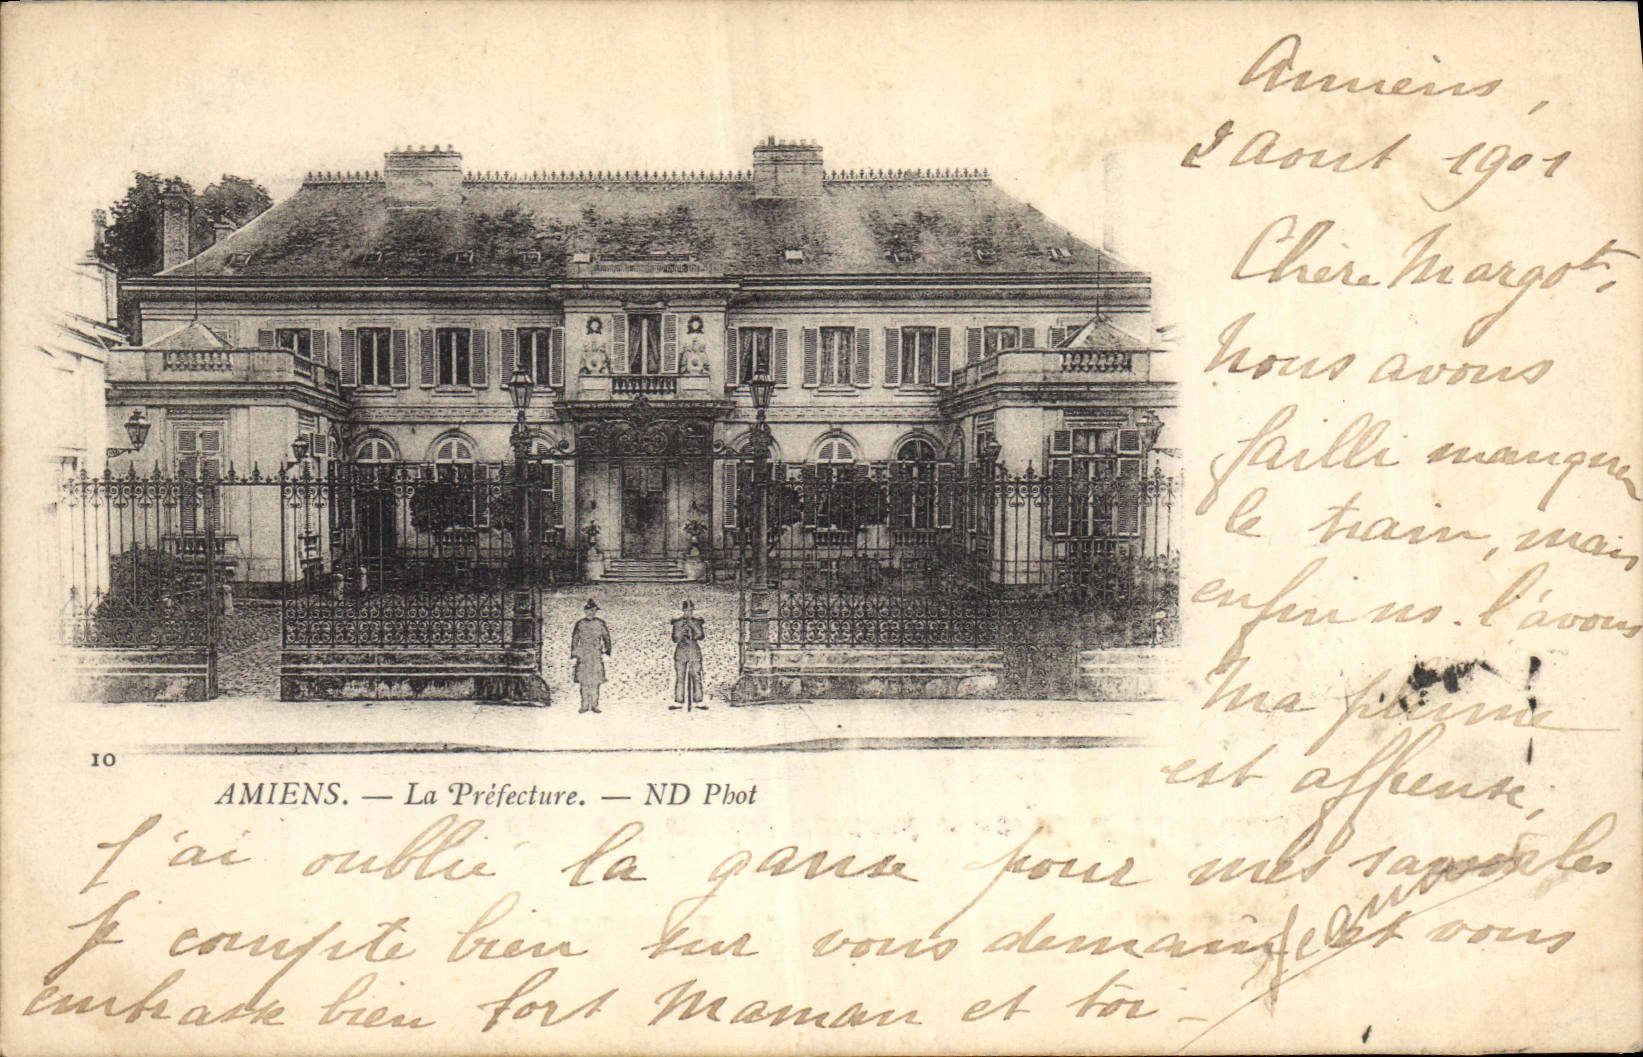 Amiens,
2 Aout 1901
Chère Margot,
Nous avons
failli manquer
le train, mais
enfin ns. l'avons
Ma plume
est affreuse,
10
AMIENS. — La Préfecture. — ND Phot
J'ai oublié la ganse pour mes
Je compte bien sur vous demain et vous
embrasse bien fort Maman et toi —